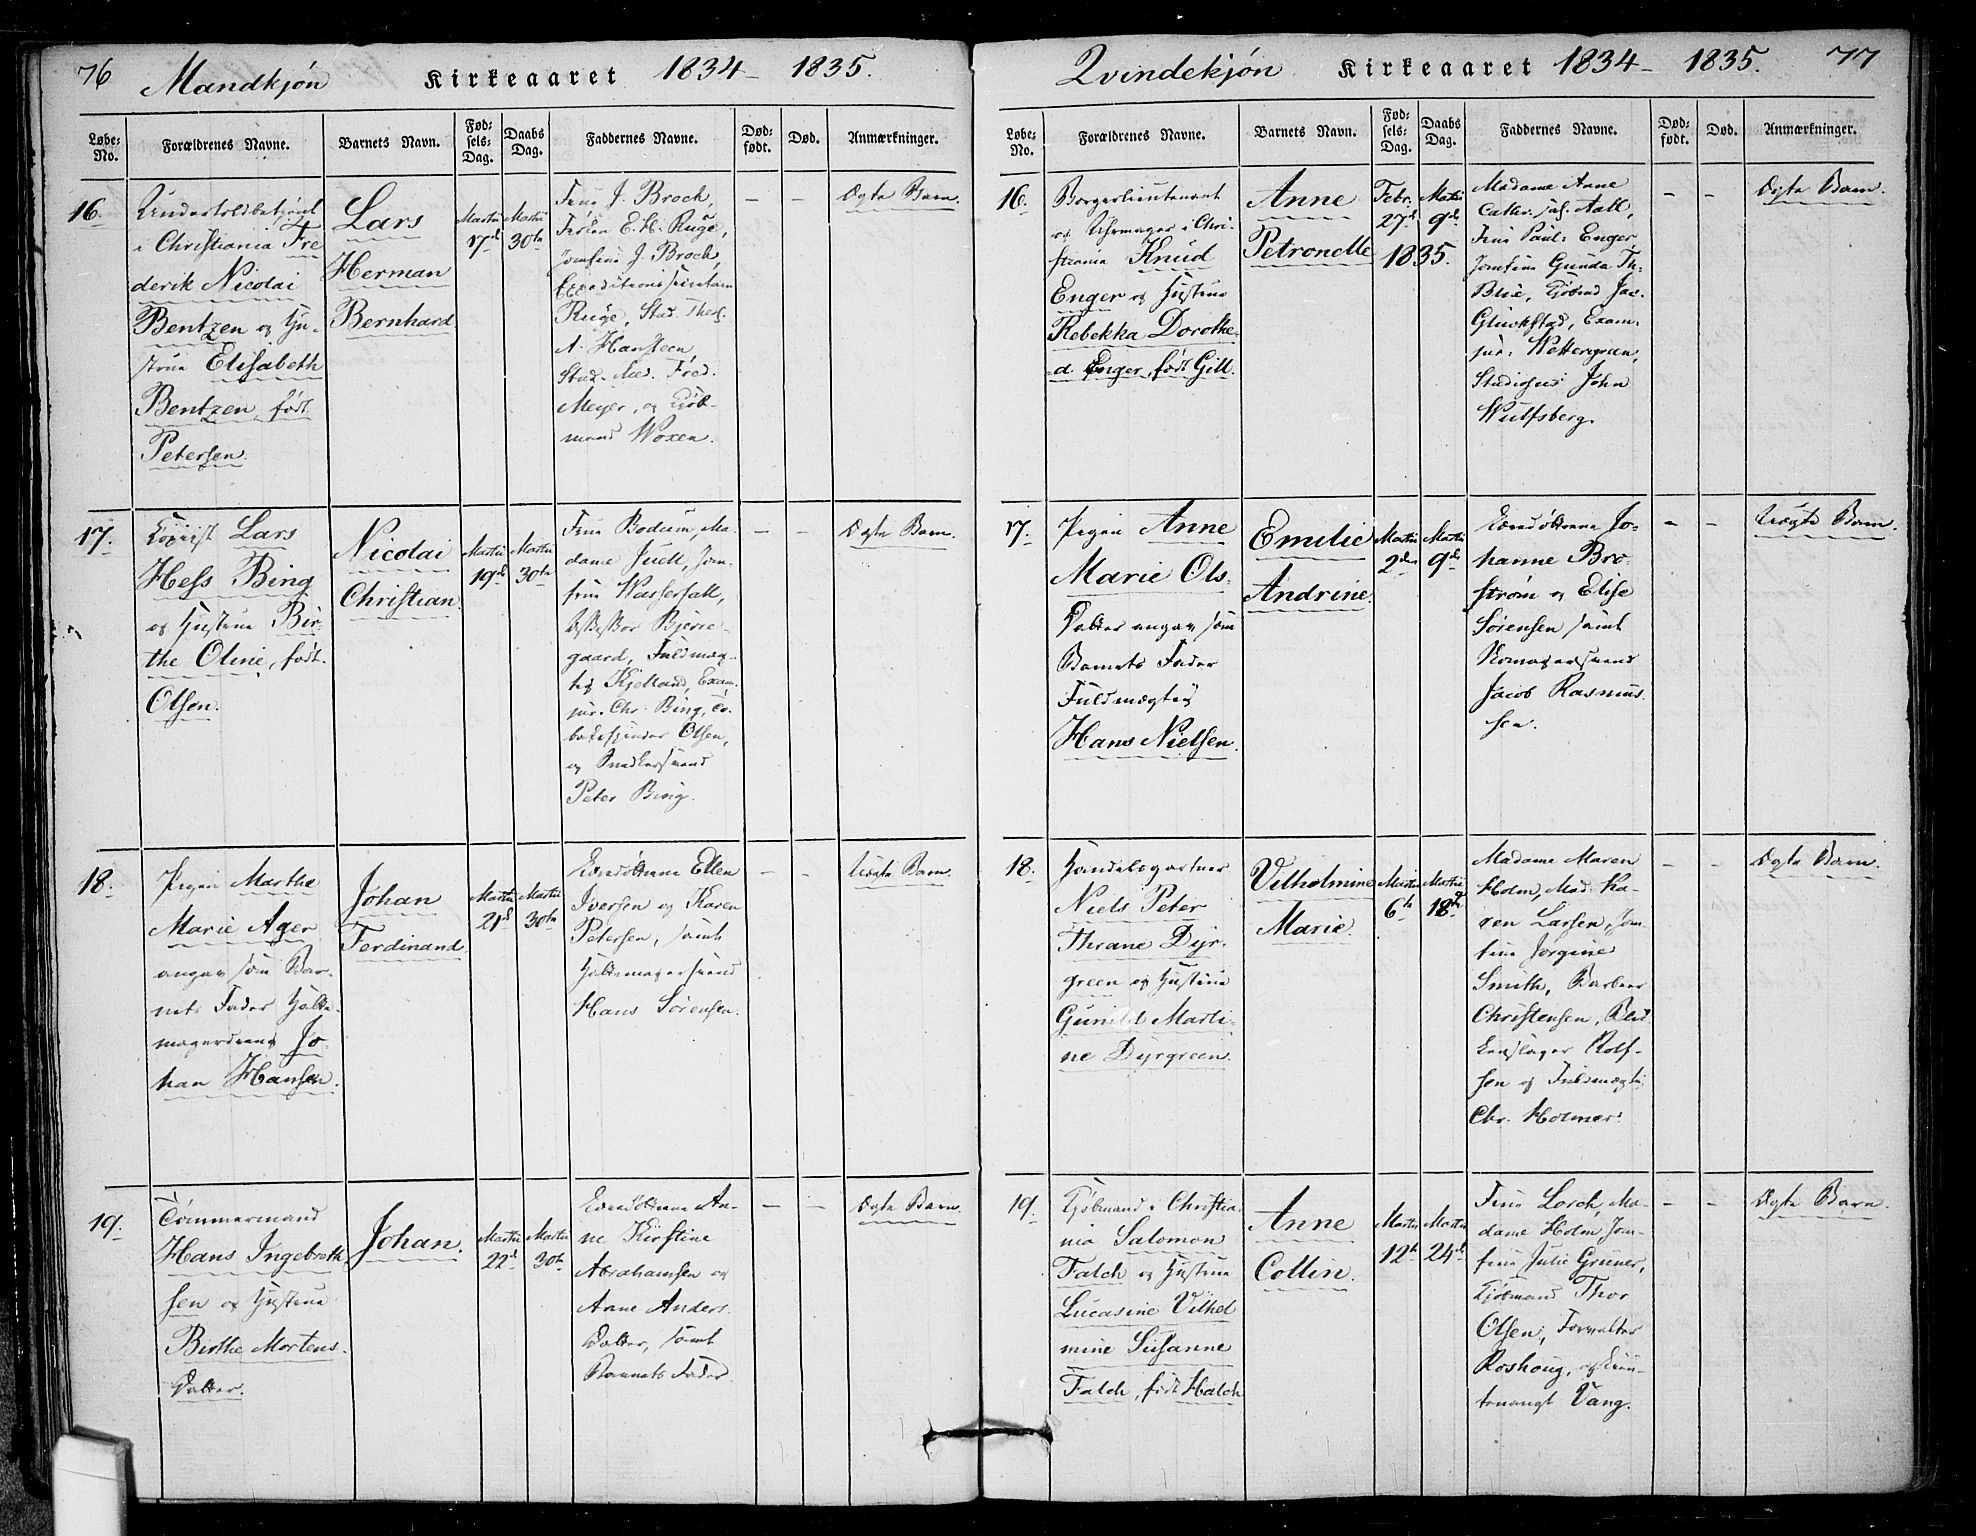 76 Mandkjøn Kirkeaaret 1834 – 1835.
Løbe-No. Forældrenes Navne. Barnets Navn. Fødsels-Dag. Daabs Dag. Faddernes Navne. Dødfødt. Død. Anmærkninger.
16.
Undertoldbetjent
i Christiania Fre
derik Nicolai
Bentzen og Hu-
strue Elisabeth
Bentzen, født
Petersen.
Lars
Herman
Bernhard
Martii
17d
Martii
30te
Frue J. Broch,
Frøken E. H. Ruge,
Jomfrue J. Broch,
Expeditionssecretair
Ruge, Stud. Theol.
A. Hansteen
Stud. Med. Fred.
Meyer, og Kjøb-
mand Woxen.
– –
Ægte Barn.
17.
Kopiist Lars
Hess Bing
og Hustrue Bir-
the Oline, født
Olsen.
Nicolai
Christian.
Martii
19d
Martii
30te
Frue Bodum, Ma-
dame Juell, Jom-
frue Wasserfall,
Bjerre-
gaard, Fuldmæg-
tig Kjelland, Exam.
jur. Chr. Bing, To-
baksspinder Olsen,
og Snedkersvend
Peter Bing.
– –
Ægte Barn.
18.
Pigen Marthe
Marie Ager
angav som Bar-
nets Fader Hatte-
magersvend Jo-
han Hansen.
Johan
Ferdinand.
Martii
21d
Martii
30te
Ellen
Iversen og Karen
Petersen, samt
Hattemagersvend
Hans Sørensen.
– –
Uægte Barn.
19.
Tømmermand
Hans Ingebreth
sen og Hustrue
Birthe Mortens-
datter.
Johan.
Martii
22d
Martii
30te
An-
ne Kirstine
Abrahamsen og
Anne Anders-
datter, samt
Barnets Fader.
– –
Ægte Barn.
Qvindekjøn Kirkeaaret 1834 – 1835. 77
Løbe-No. Forældrenes Navne. Barnets Navn. Fødsels-Dag. Daabs Dag. Faddernes Navne. Dødfødt. Død. Anmærkninger.
16.
Borgerlieutenant
og Uhrmager i Chri-
stiania Knud
Enger og Hustrue
Rebekka Dorothe-
a Enger, født Gill.
Anne
Petronelle
Febr.
27d
Martii
9de
1835.
Madame Anne
Cathr. sal. Aall,
Frue Paul: Enger,
Jomfrue Gunda Th:
Blix, Kjøbmd Jac.
Gluckstad, Exam.
jur: Wettergreen,
Studiosus John
Wulfsberg.
– –
Ægte Barn.
17.
Pigen Anne
Marie Ols-
datter angav som
Barnets Fader
Fuldmægtig
Hans Nielsen.
Emilie
Andrine.
Martii
2den
Martii
9de
Jo-
hanne Bro-
strøm og Elise
Sørensen samt
Skomagersvend
Jacob Rasmus-
sen.
– –
Uægte Barn.
18.
Handelsgartner
Niels Peter
Thrane Dyr-
green og Hustrue
Gunild Marti-
ne Dyrgreen.
Vilhelmine
Marie.
Martii
6te
Martii
18de
Madame Maren
Holm, Mad. Ka-
ren Larsen, Jom-
frue Jørgine
Smith, Barbeer
Christensen, Blik
kenslager Rolf-
sen og Fuldmægtig
Chr. Holmer.
– –
Ægte Barn.
19.
Kjøbmand i Christia-
nia Salomon
Falch og Hustrue
Lucasine Vilhel
mine Susanne
Falch, født Halck
Anne
Collin.
Martii
12te
Martii
24de
Frue Lorch, Ma-
dame Holm, Jom-
frue Julie Gruner,
Kjøbmand Thor
Olsen, Forvalter
Roshoug, og Lieu-
tenant Vang.
– –
Ægte Barn.